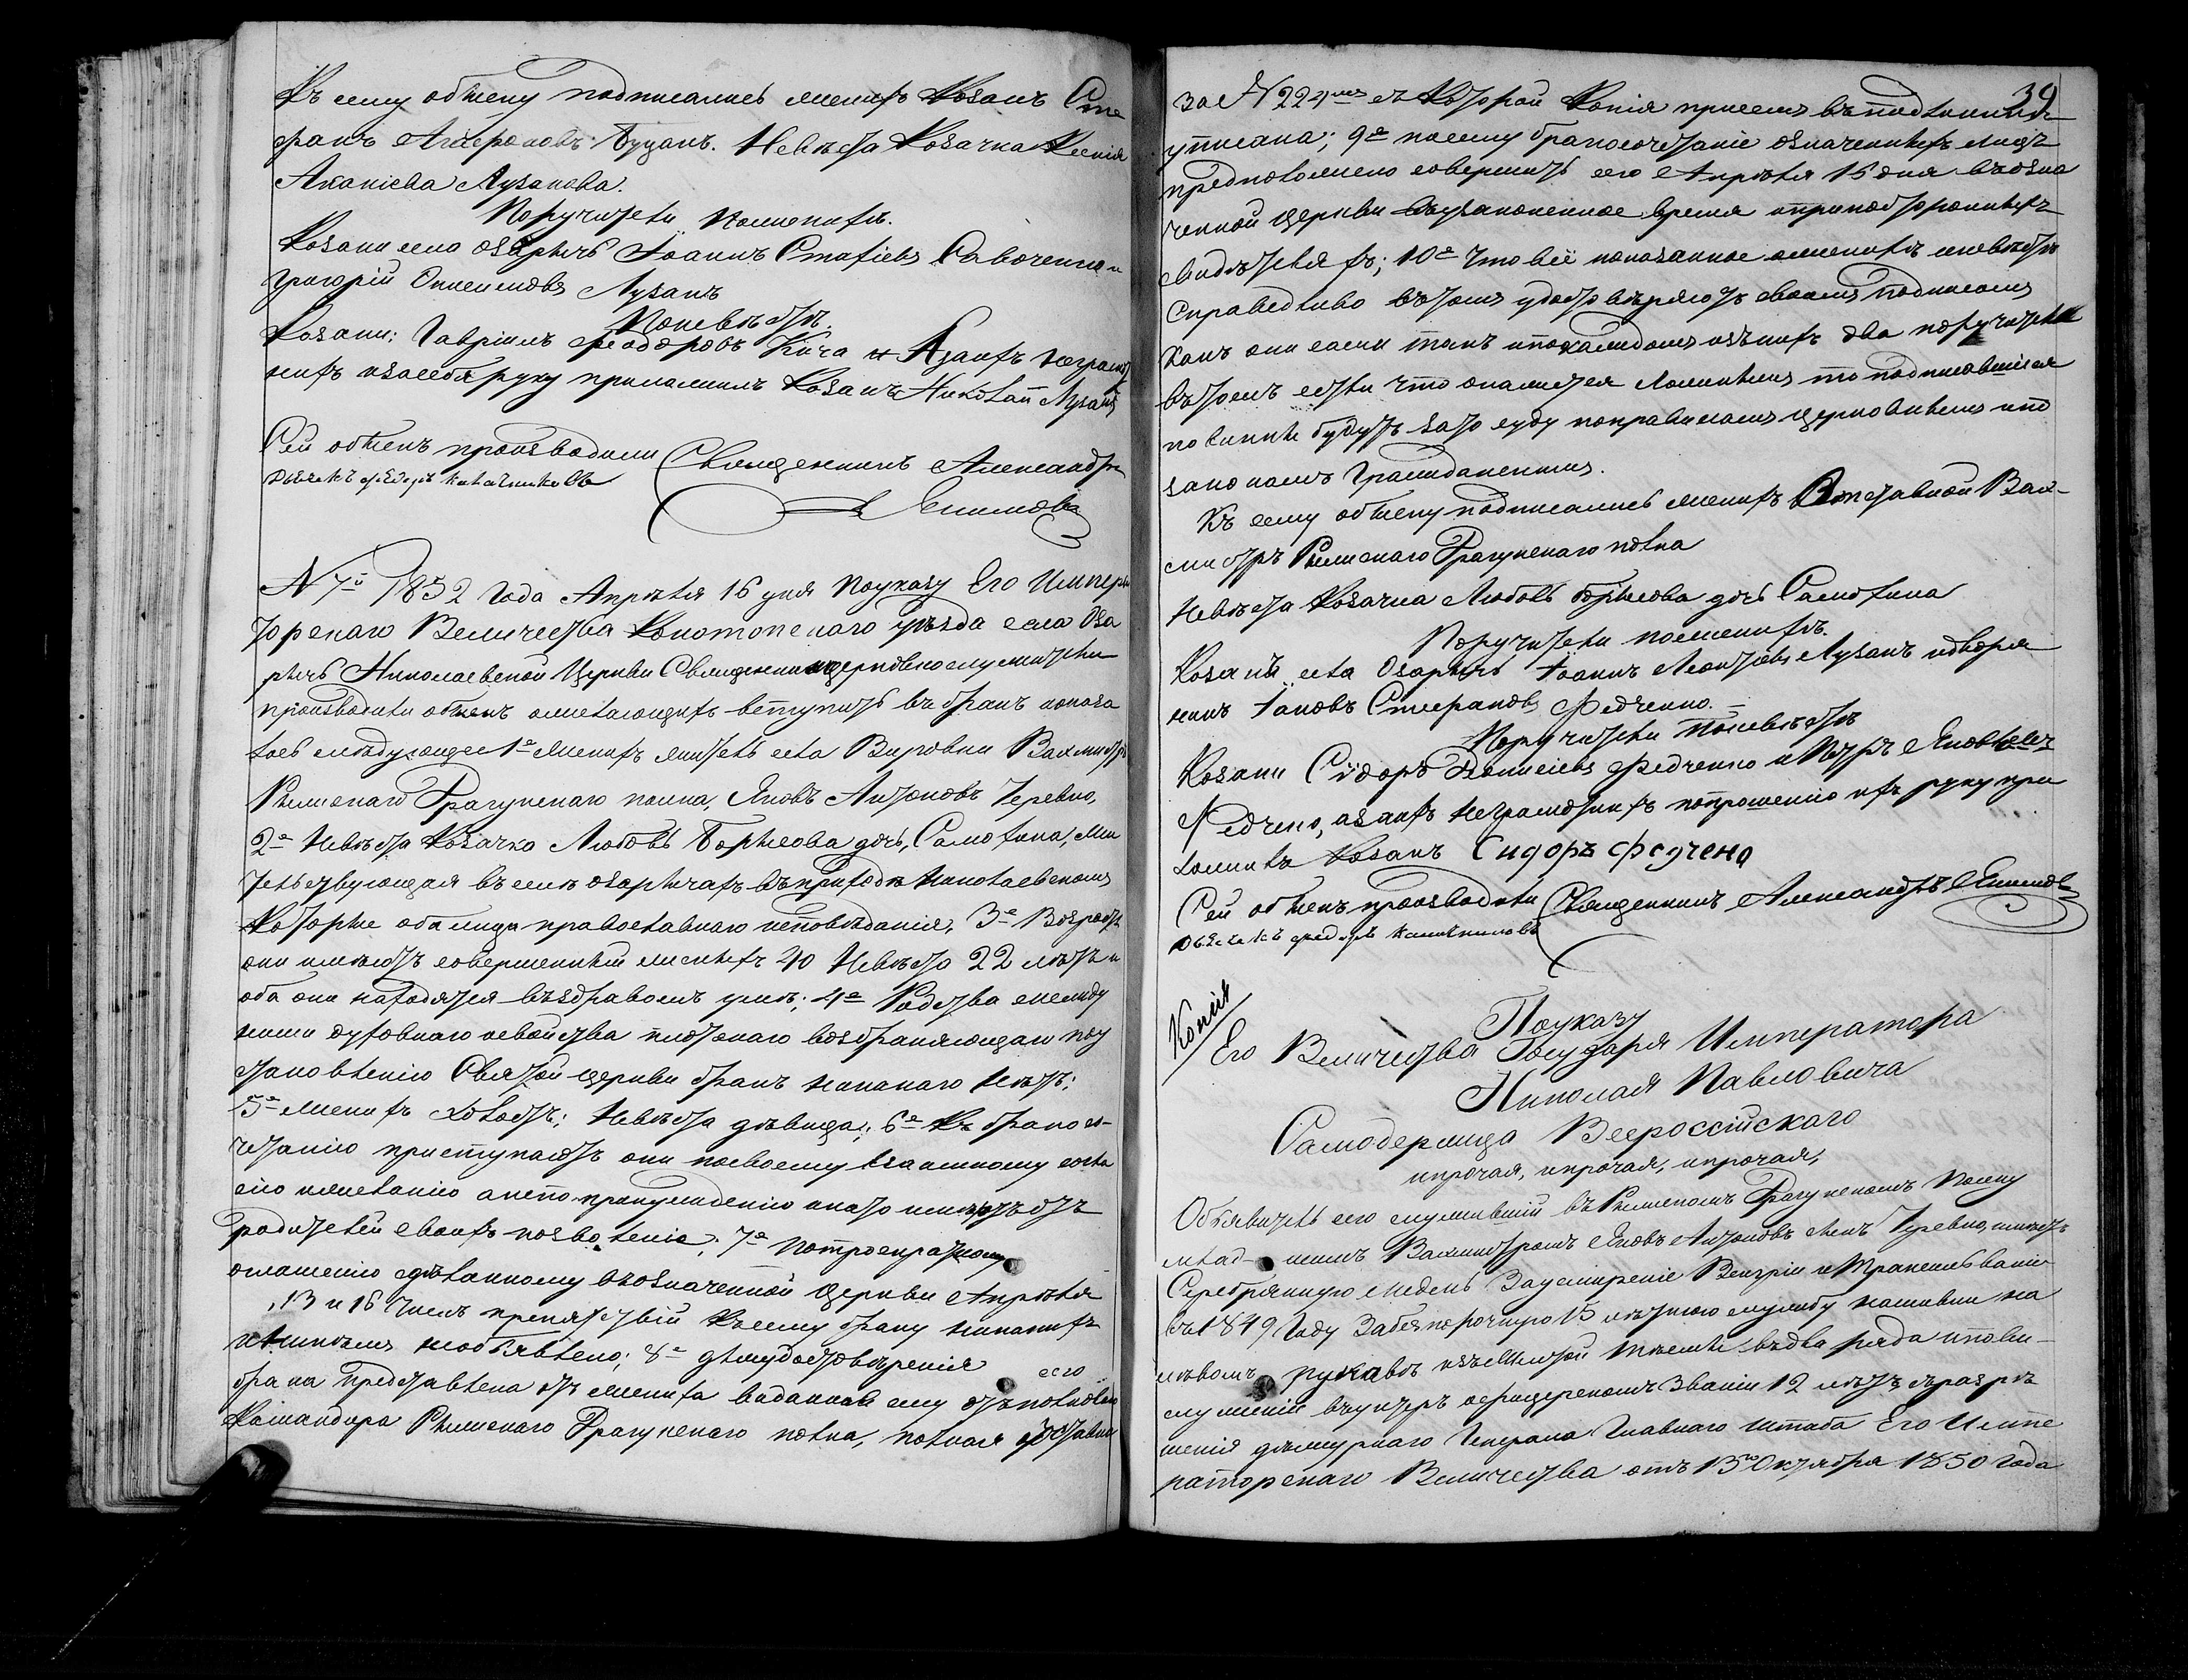 Къ сему обыску подписались женихъ Козакъ Сте
фанъ Агафоновъ Буцанъ. Невѣста Козачка Ксенія
Акакіева Лузанова.
Поручители По женихѣ.
Козаки села Озарычъ Іоаннъ Савоченко и
Григорій Лузанъ
По невѣстѣ.
Козаки: Гавріилъ Феодоровъ Кича и Азанихъ неграмот
нихъ и за себя руку приложилъ Козакъ Николай Лузанъ
Сей обыскъ производили Священникъ Александръ
Дьячекъ Федоръ Якимовъ
N 7й 1852 Года Апрѣля 16 дня По указу Его Импера
торскаго Величества Конотопскаго уѣзда села Оза
рычъ Николаевской Церкви Священно церковнослужители
производили обыскъ о желающихъ вступить въ бракъ и оказа
лось слѣдующее 1е Женихъ житель села Вировки Вахмистръ
Рижскаго Драгунскаго полка, Яковъ Антоновъ Черевко,
2е Невѣста Козачка Любовь Борисова дочь, Самохина, жи
тельствующая въ селѣ Озарычахъ въ приходѣ Николаевскомъ
Которые оба лица православнаго исповѣданія, 3е Возрастъ
они имѣютъ совершенный женихъ 40 Невѣста 22 лѣтъ и
оба они находятся въ здравомъ умѣ; 4е Родства между
ними духовнаго и свойства плотскаго возбраняющаго по у
становленію Святой церкви бракъ никакаго нѣтъ;
5е Женихъ холостъ; Невѣста дѣвица; 6е Къ бракосо-
четанію приступаютъ они по своему взаимному согла
сію и желанію а не по принужденію и на то имѣютъ отъ
родителей своихъ позволеніе; 7е По троекратному
оглашенію сдѣланному въ означенной Церкви Апрѣля
, 13 и 16 Числъ препятствій къ сему браку никакихъ
и никѣмъ не объявлено; 8е Для удостовѣренія сего
брака представлена отъ жениха виданная ему отъ полковаго
Командира Рижскаго Драгунскаго полка, полная отставка
39
за N 2241мъ съ которой Копія при семъ въ подлинникъ
упписана; 9е по сему бракосочетаніе означенныхъ лицъ
предположено совершить сего Апрѣля 16 дня въ озна
ченной Церкви въ узаконенное время и при постороннихъ
свидѣтеляхъ; 10е Что всё показанное о женихѣ и невѣстѣ
Справедливо въ томъ удостовѣряютъ своимъ подписомъ
какъ они сами такъ и по каждомъ изъ нихъ два поручителя
въ томъ если что окажется ложнымъ то подписавшіися
повинны будутъ за то суду по правиламъ церковнымъ и по
законамъ гражданскимъ.
Къ сему обыску подписались женихъ Отставной Вах-
мистръ Рижскаго Драгунскаго полка
Невѣста Козачка Любовь Борисова дочь Самохина
Поручители по женихѣ.
Козакъ села Озарычъ Іоаннъ Леонтіевъ Лузанъ и дворя
нинъ Іаковъ Стефановъ Федченко.
Поручители По невѣстѣ
Козаки Сидоръ Денисіевъ Федченко и Петръ Яковлевъ
Федченко, а за нихъ неграмотнихъ по прошенію ихъ руку при
ложилъ Козакъ Сидоръ Федчено
Сей обыскъ производили Священникъ Александръ Якимовъ
Дьячекъ Федоръ
Копія
По указу
Его Величества Государя Императора
Николая Павловича
Самодержца Всероссійскаго
и прочая, и прочая, и прочая,
Объявитель сего служившій въ Рижскомъ Драгунскомъ Полку
млад- шимъ Вахмистромъ Яковъ Антоновъ сынъ Черевко, имѣетъ
Серебрянную медаль За усмиреніе Венгріи и Трансильваніи
въ 1849 Году За безпорочную 15 лѣтнюю службу нашивки на
лѣвомъ рукавѣ изъ желтой тесьмы въ два ряда и по вы-
служеніи въ унтеръ офицерскомъ Званіи 12 лѣтъ съ разрѣ
шенія дежурнаго Генерала Главнаго Штаба Его Импе
раторскаго Величества отъ 13го Октября 1850 Года